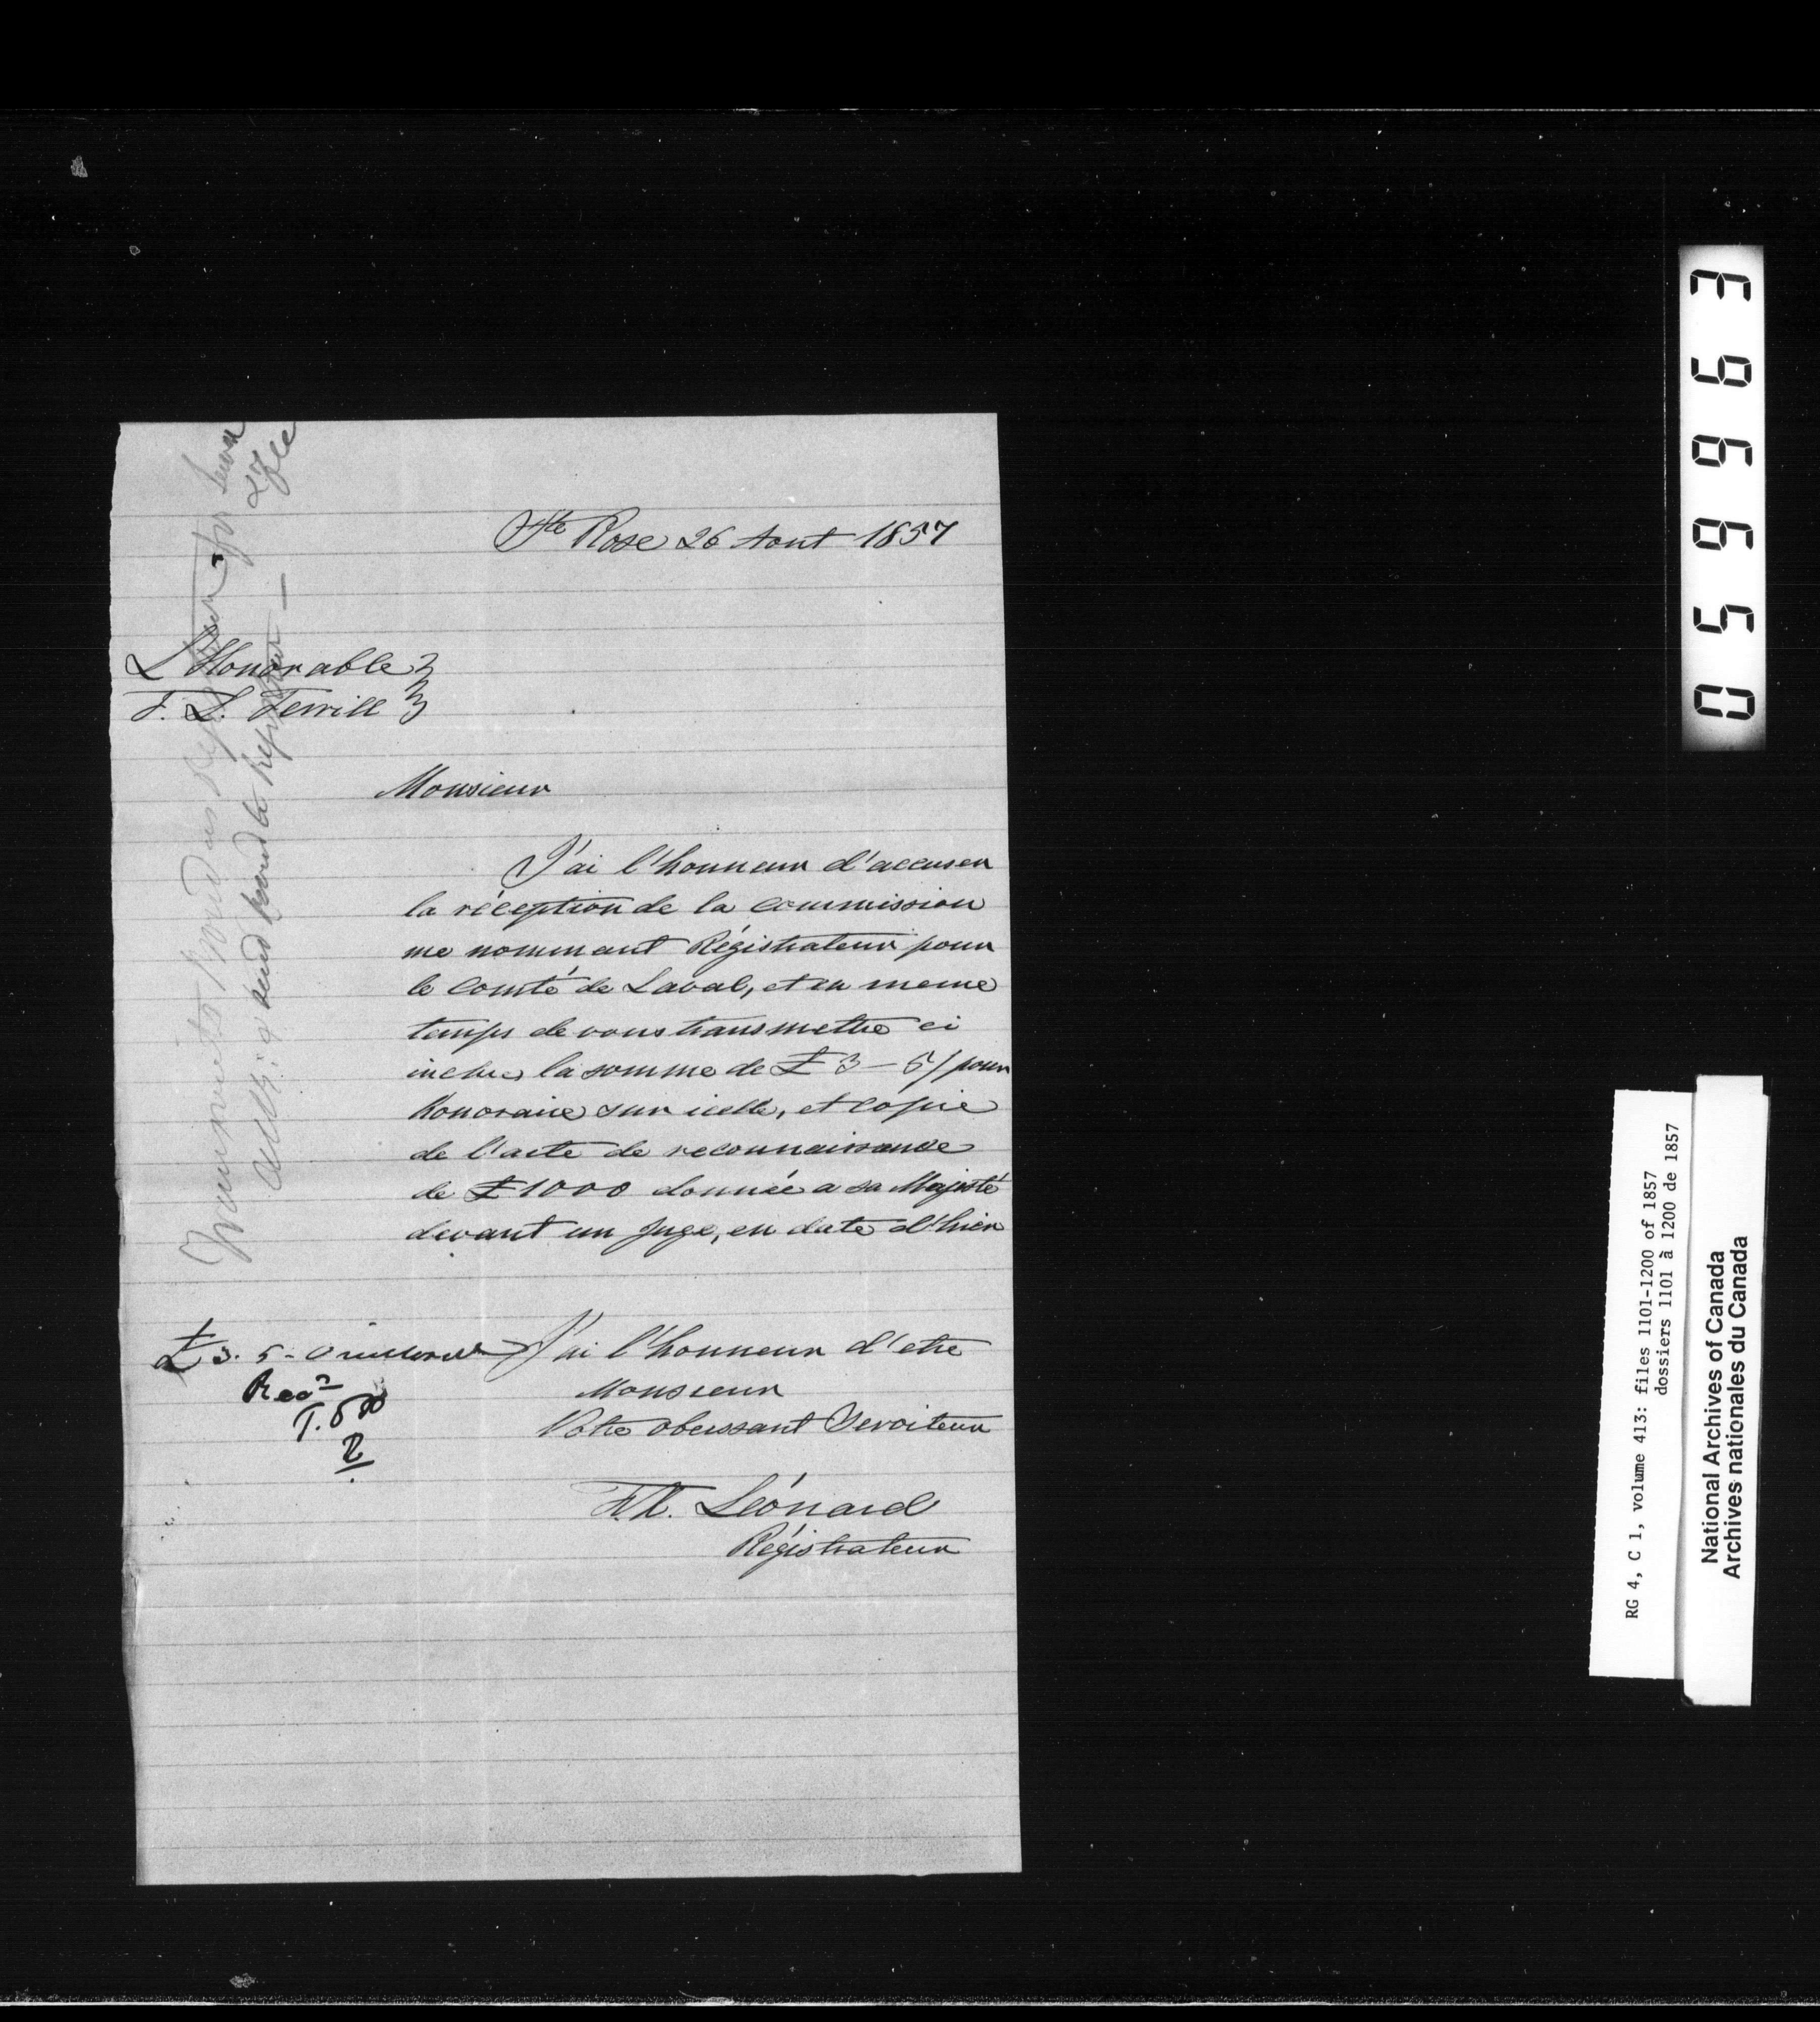 Ste Rose 26 Aout 1857
L'Honorable
T. L. Terrill
Monsieur
J'ai l'honneur d'accuser
la réception de la commission
me nommant Régistrateur pour
le Comté de Laval, et en meme
temps de vous transmettre ci
inclus la somme de £ 3 – 5/ pour
honoraire sur icelle, et copie
de l'acte de reconnaissance
de £1000 donnée a sa Majesté
devant un Juge, en date d'hier
J'ai l'honneur d'etre
Monsieur
Votre obeissant Serviteur
Léonard
Régistrateur
£3. 5 - 0
send
059663
RG 4, C 1, volume 413: files 1101-1200 of 1857
dossiers 1101 à 1200 de 1857
National Archives of Canada
Archives nationales du Canada